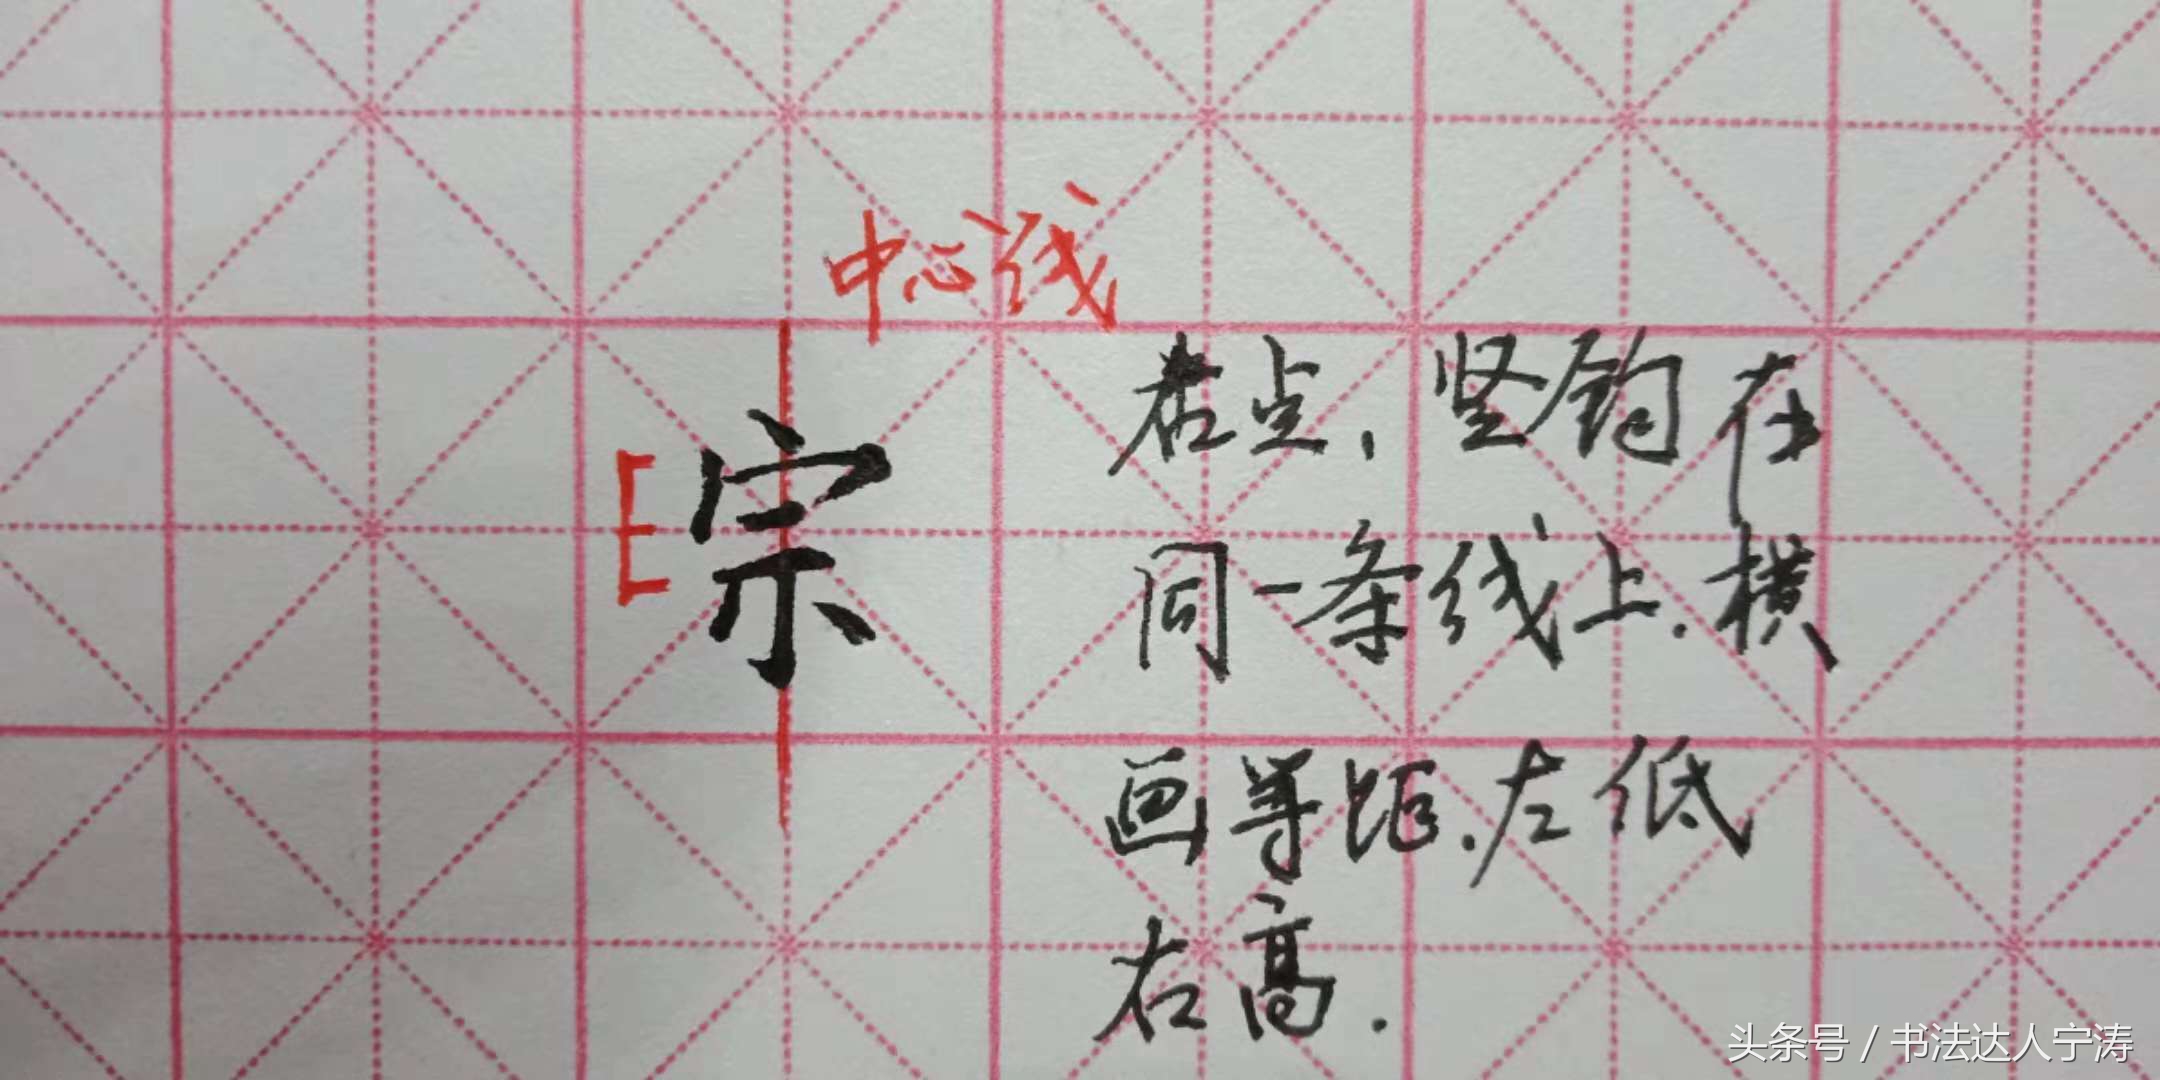 中心线
宗
点,竖钩在
同一条线上.横
画等距.左低
右高.
头条号 / 书法达人宁涛